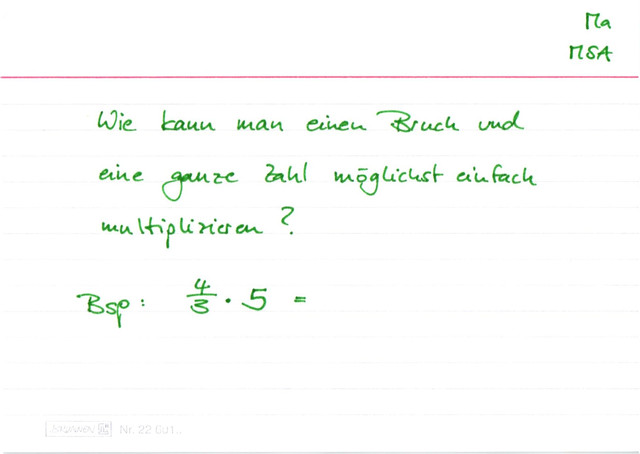 Ma
MSA
Wie kann man einen Bruch und
eine ganze Zahl möglichst einfach
multiplizieren?
Bsp: 4/3 · 5 =
Nr. 22 601